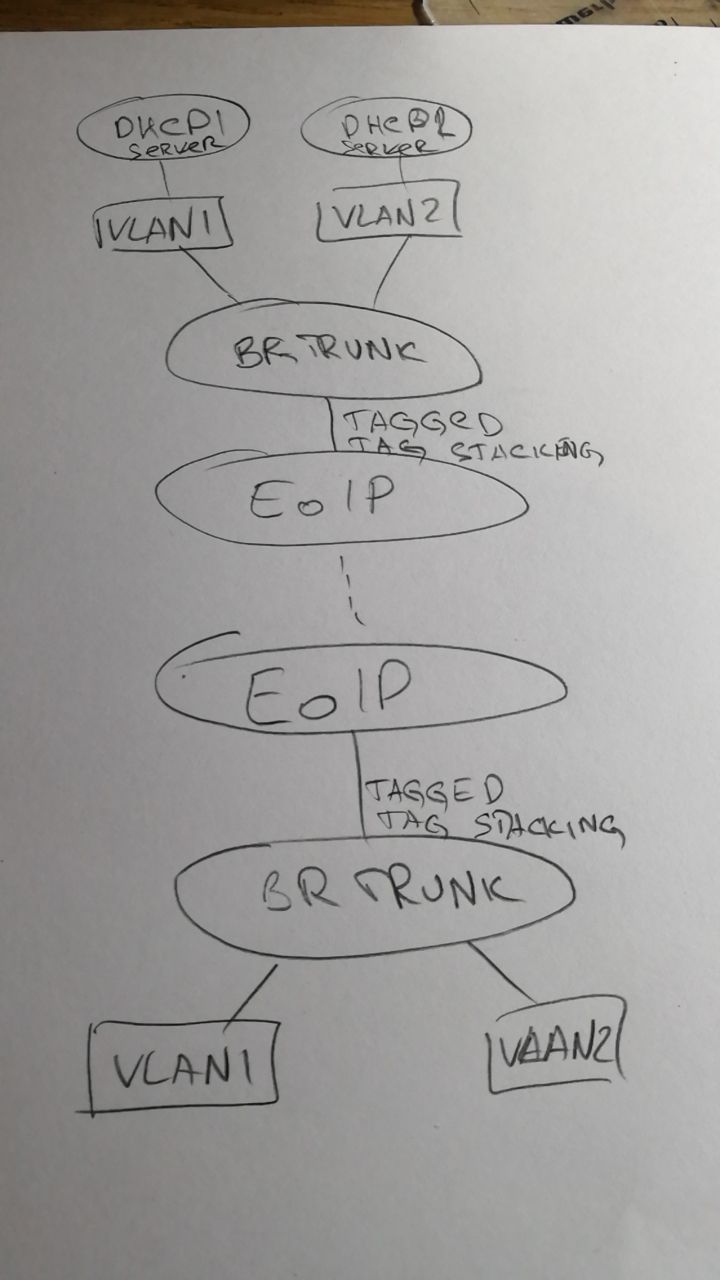 DHCP1
SERVER
DHCP2
SERVER
VLAN1
VLAN2
BR TRUNK
TAGGED
TAG STACKING
EoIP
EoIP
TAGGED
TAG STACKING
BR TRUNK
VLAN1
VLAN2